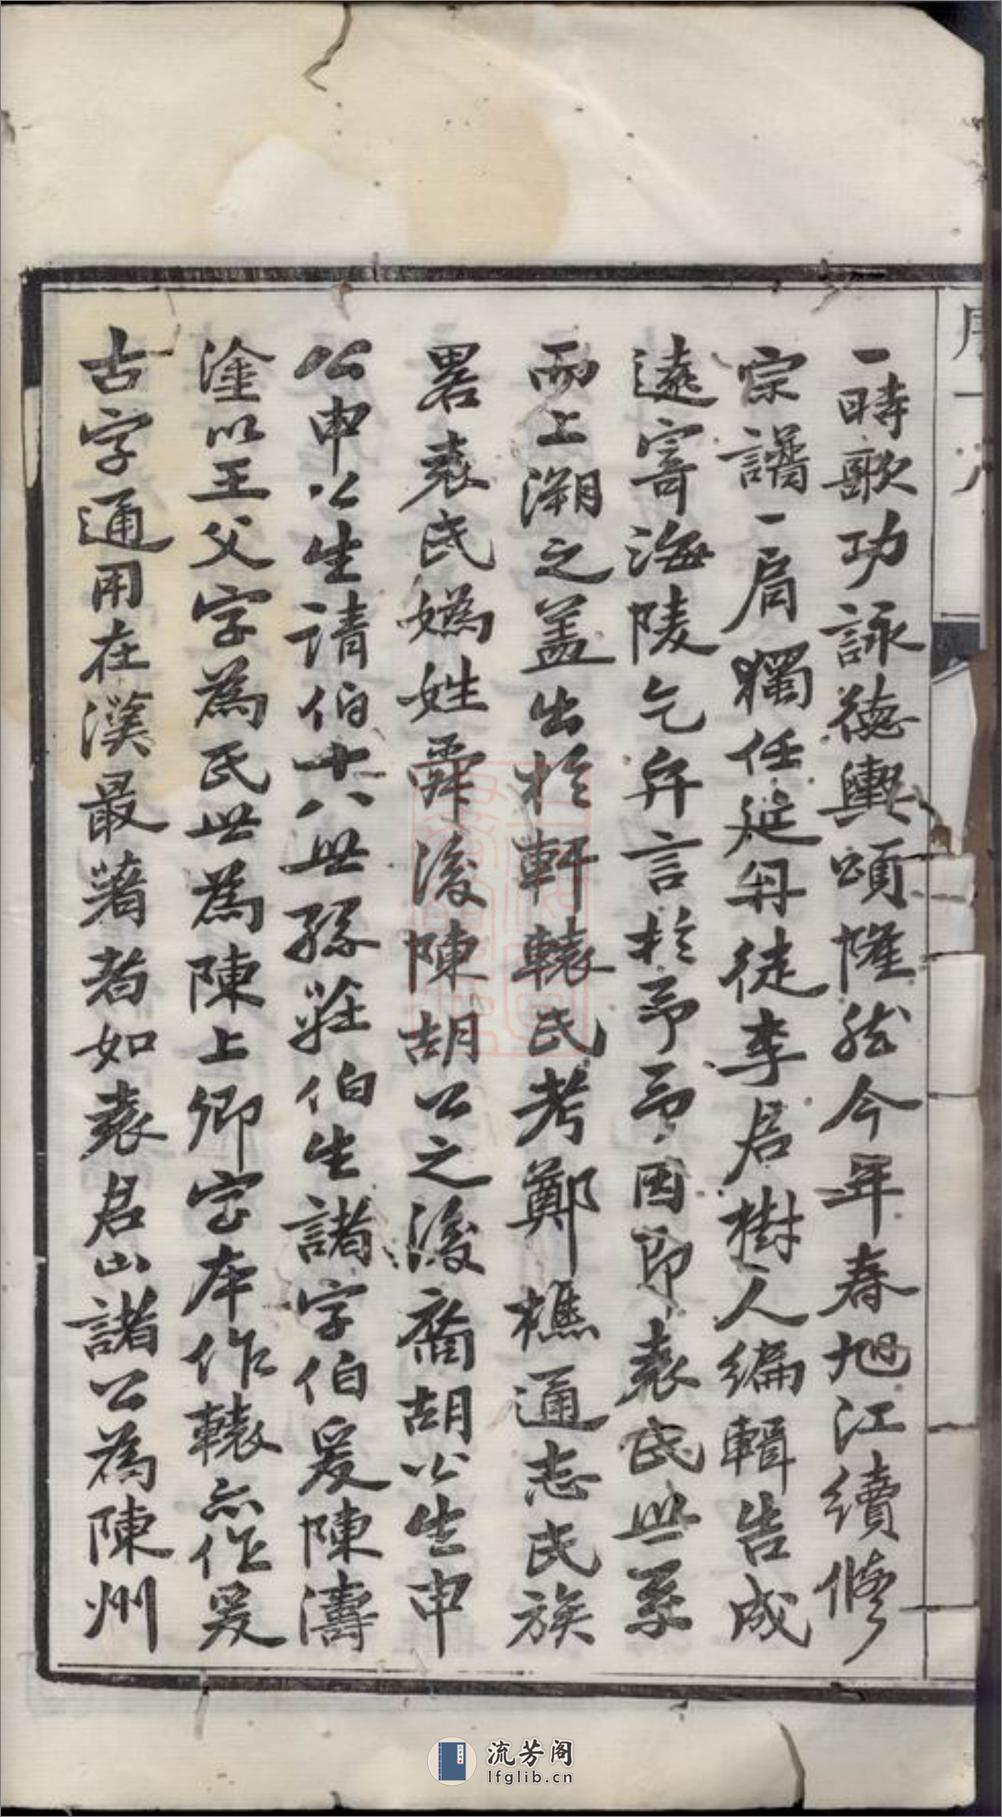 一時歌功詠德輿頌隆然今年春旭江續修
宗譜一局獨任延丹徒李君樹人編輯告成
遠寄海陵乞弁言於予予因即袁氏世系
而上溯之蓋出於軒轅氏考鄭樵通志氏族
畧袁氏媯姓舜後陳胡公之後裔胡公生申
公申公生請伯十八世孫莊伯生諸字伯爰陳濤
塗以王父字為氏世為陳上卿字本作轅亦作爰
古字通用在漢最著者如袁君山諸公為陳州
流芳阁
lfglib.cn